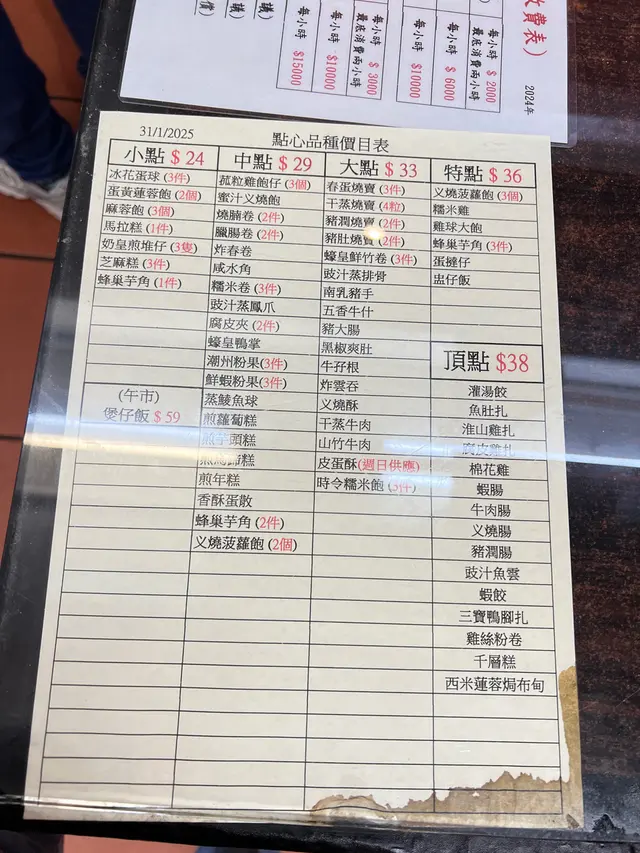 收費表)
2024年
每小時 $ 2000
最底消費兩小時
每小時 $ 6000
每小時 $10000
每小時 $ 3000
最底消費兩小時
每小時 $10000
每小時 $15000
31/1/2025
點心品種價目表
小點 $ 24
冰花蛋球 (3件)
蛋黃蓮蓉飽 (2個)
麻蓉飽 (3個)
馬拉糕 (1件)
奶皇煎堆仔 (3隻)
芝麻糕 (3件)
蜂巢芋角 (1件)
(午市)
煲仔飯 $ 59
中點 $ 29
孤粒雞飽仔 (3個)
蜜汁义燒飽
燒腩卷 (2件)
臘腸卷 (2件)
炸春卷
咸水角
糯米卷 (3件)
豉汁蒸鳳爪
腐皮夾 (2件)
蠔皇鴨掌
潮州粉果(3件)
鮮蝦粉果(3件)
蒸鯪魚球
煎蘿蔔糕
煎芋頭糕
煎馬蹄糕
煎年糕
香酥蛋散
蜂巢芋角 (2件)
义燒菠蘿飽 (2個)
大點 $ 33
春蛋燒賣 (3件)
干蒸燒賣 (4粒)
豬潤燒賣 (2件)
豬肚燒賣 (2件)
蠔皇鮮竹卷 (3件)
豉汁蒸排骨
南乳豬手
五香牛什
豬大腸
黑椒爽肚
牛孖根
炸雲吞
义燒酥
干蒸牛肉
山竹牛肉
皮蛋酥(週日供應)
時令糯米飽 (3件)
特點 $ 36
义燒菠蘿飽 (3個)
糯米雞
雞球大飽
蜂巢芋角 (3件)
蛋撻仔
盅仔飯
頂點 $38
灌湯餃
魚肚扎
淮山雞扎
腐皮雞扎
棉花雞
蝦腸
牛肉腸
义燒腸
豬潤腸
豉汁魚雲
蝦餃
三寶鴨腳扎
雞絲粉卷
千層糕
西米蓮蓉焗布甸